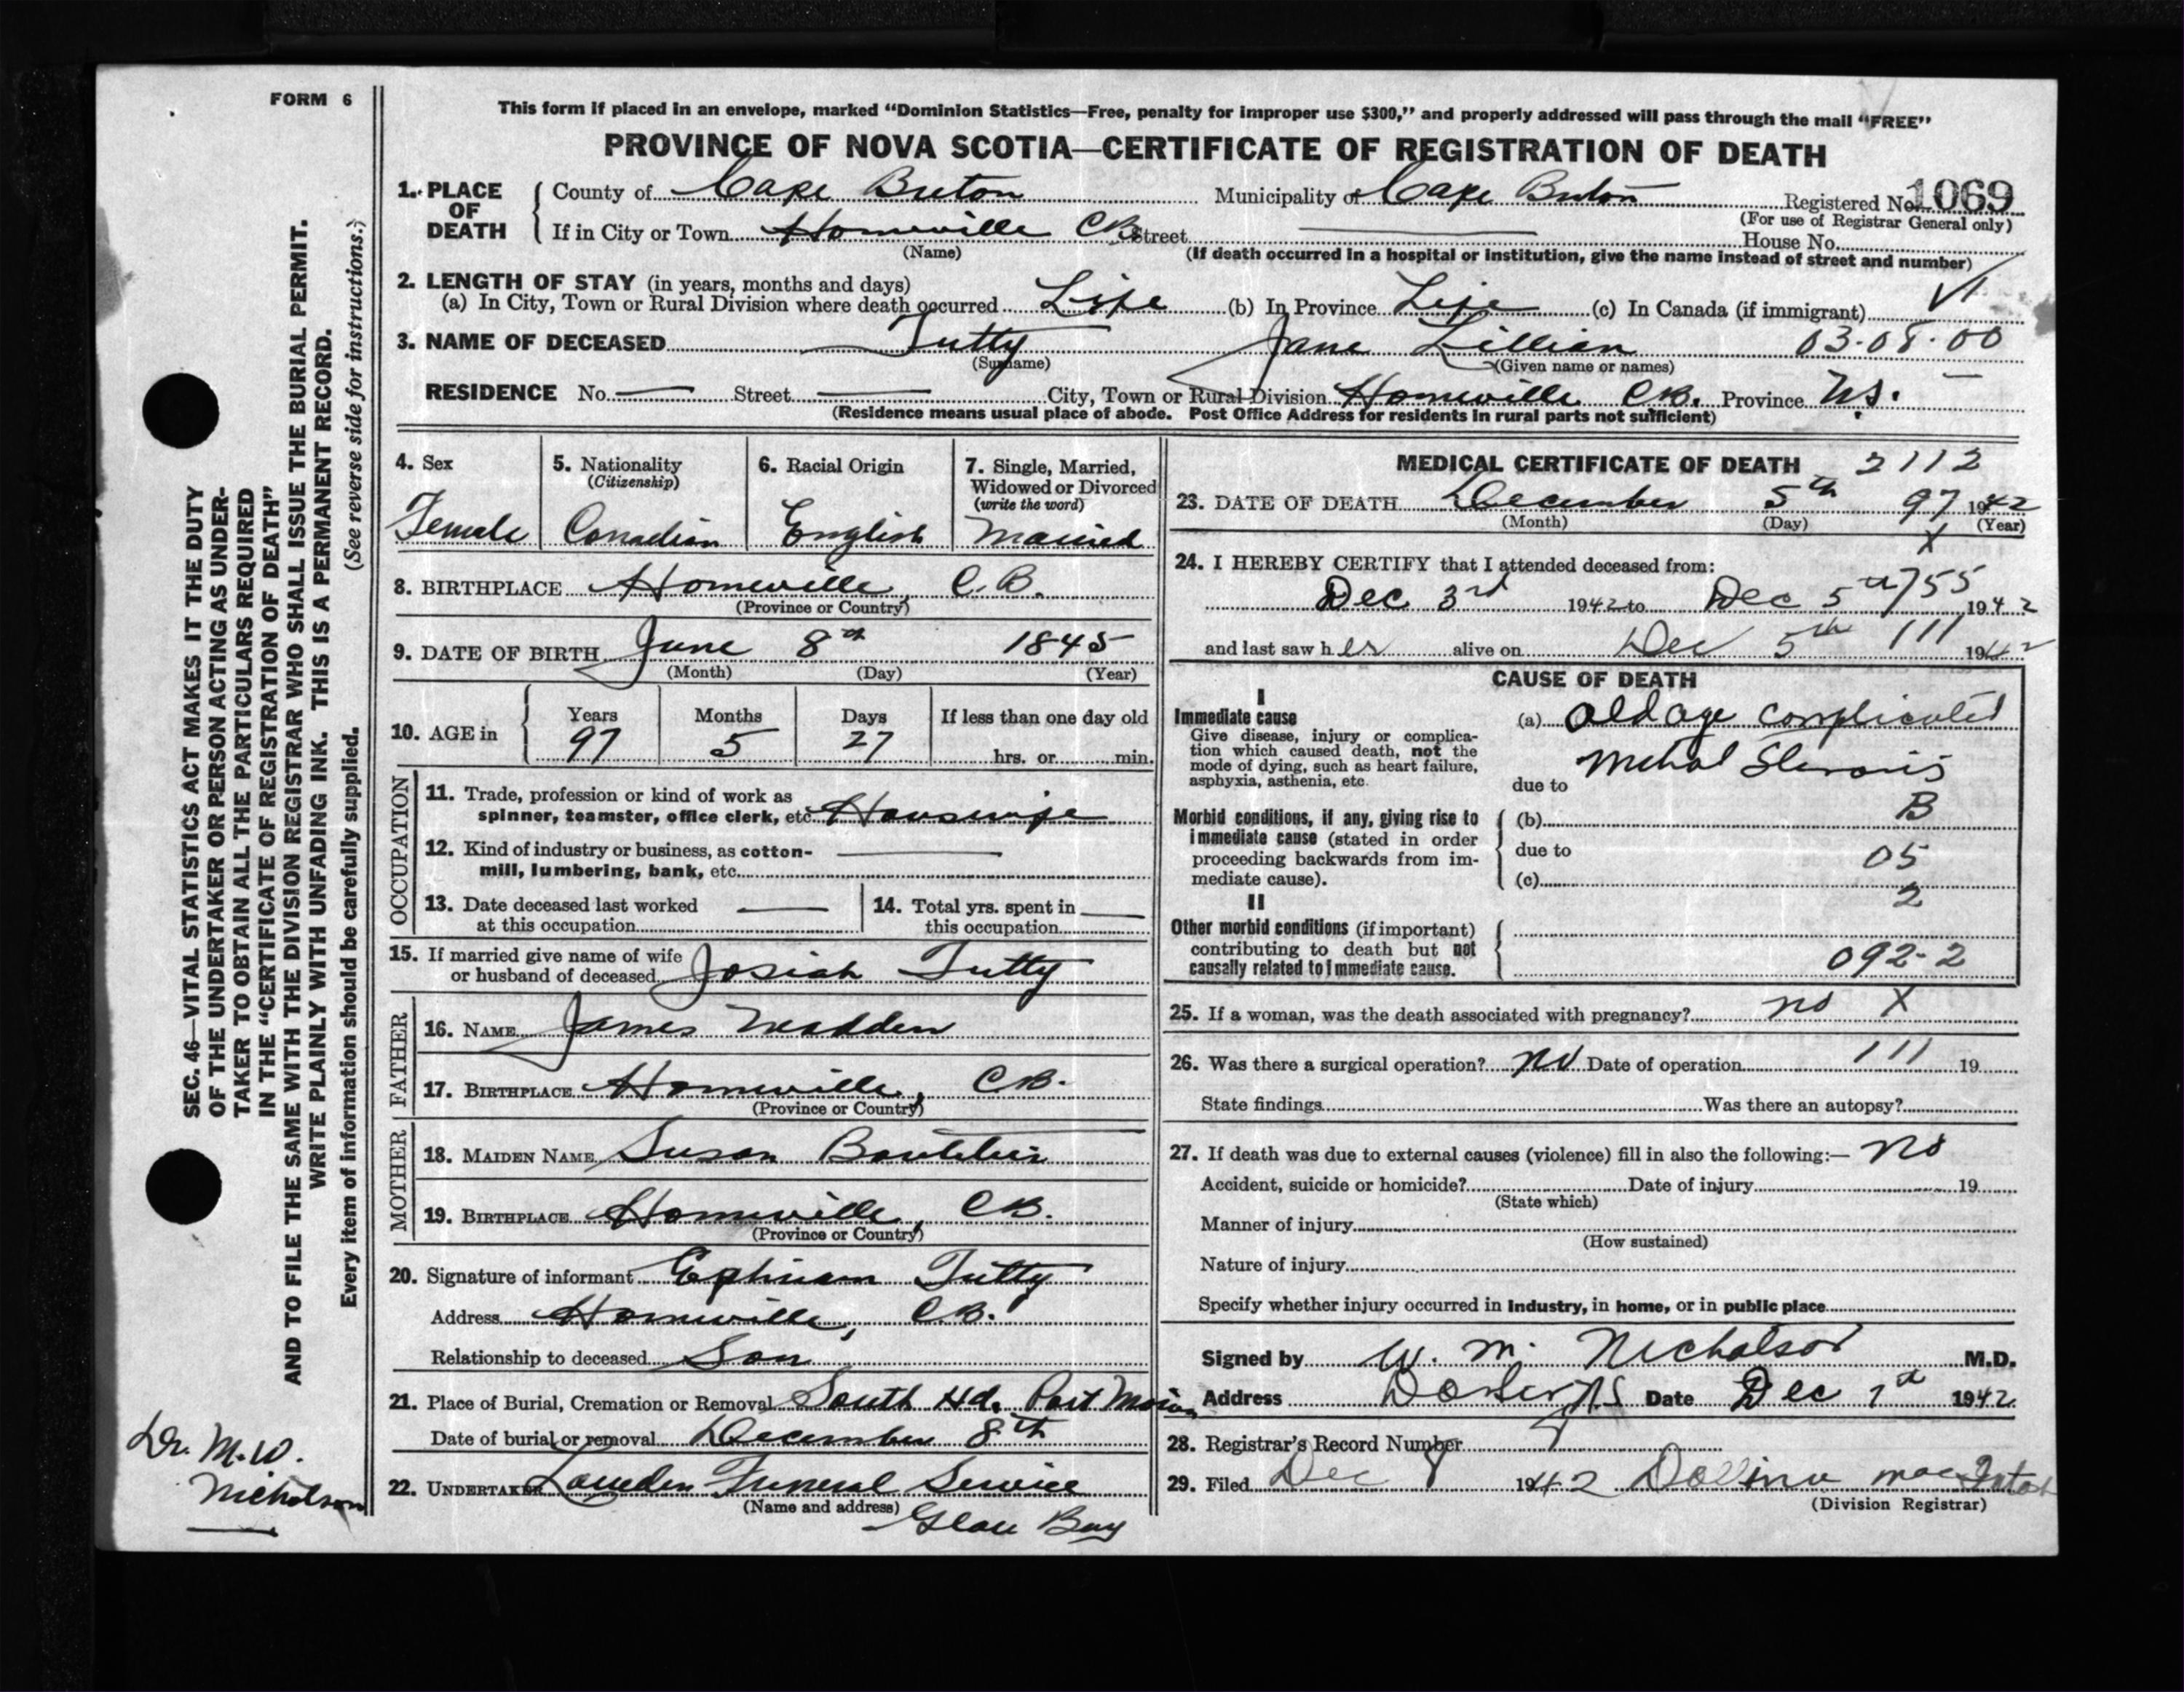 FORM 6
This form if placed in an envelope, marked “Dominion Statistics—Free, penalty for improper use $300,” and properly addressed will pass through the mail “FREE”
PROVINCE OF NOVA SCOTIA—CERTIFICATE OF REGISTRATION OF DEATH
1. PLACE OF DEATH County of Cape Breton Municipality of Cape Breton Registered No. 1069
(For use of Registrar General only)
If in City or Town Homeville CB Street House No.
(Name) (If death occurred in a hospital or institution, give the name instead of street and number)
2. LENGTH OF STAY (in years, months and days)
(a) In City, Town or Rural Division where death occurred Life (b) In Province Life (c) In Canada (if immigrant)
3. NAME OF DECEASED Tutty Jane Lillian 03-08-00
(Surname) (Given name or names)
RESIDENCE No. Street City, Town or Rural Division Homeville CB. Province N.S.
(Residence means usual place of abode. Post Office Address for residents in rural parts not sufficient)
4. Sex
Female
5. Nationality
(Citizenship)
Canadian
6. Racial Origin
English
7. Single, Married,
Widowed or Divorced
(write the word)
Married
8. BIRTHPLACE Homeville, C.B.
(Province or Country)
9. DATE OF BIRTH June 8th 1845
(Month) (Day) (Year)
10. AGE in Years Months Days If less than one day old
97 5 27 hrs. or min.
OCCUPATION
11. Trade, profession or kind of work as
spinner, teamster, office clerk, etc. Housewife
12. Kind of industry or business, as cotton-
mill, lumbering, bank, etc.
13. Date deceased last worked
at this occupation
14. Total yrs. spent in
this occupation
15. If married give name of wife
or husband of deceased Josiah Tutty
FATHER
16. NAME James Madden
17. BIRTHPLACE Homeville, CB.
(Province or Country)
MOTHER
18. MAIDEN NAME Susan Boutilier
19. BIRTHPLACE Homeville, CB.
(Province or Country)
20. Signature of informant Ephriam Tutty
Address Homeville, C.B.
Relationship to deceased Son
21. Place of Burial, Cremation or Removal South Hd. Port Morien
Date of burial or removal December 8th
22. UNDERTAKER Funeral Service
(Name and address) Glace Bay
MEDICAL CERTIFICATE OF DEATH 2112
23. DATE OF DEATH December 5th 97 1942
(Month) (Day) (Year)
X
24. I HEREBY CERTIFY that I attended deceased from:
Dec 3rd 1942 to Dec 5th 755 1942
and last saw her alive on Dec 5th 111 1942
CAUSE OF DEATH
I
Immediate cause
Give disease, injury or complica-
tion which caused death, not the
mode of dying, such as heart failure,
asphyxia, asthenia, etc.
(a) Old age complicated
due to Mitral
Morbid conditions, if any, giving rise to
immediate cause (stated in order
proceeding backwards from im-
mediate cause).
(b) B
due to 05
(c) 2
II
Other morbid conditions (if important)
contributing to death but not
causally related to immediate cause.
092-2
25. If a woman, was the death associated with pregnancy? no X
26. Was there a surgical operation? no Date of operation 111 19
State findings Was there an autopsy?
27. If death was due to external causes (violence) fill in also the following:— no
Accident, suicide or homicide? Date of injury 19
(State which)
Manner of injury
(How sustained)
Nature of injury
Specify whether injury occurred in industry, in home, or in public place
Signed by W. M. Nicholson M.D.
Address N.S Date Dec 7th 1942
28. Registrar's Record Number 9
29. Filed Dec 8 1942 MacIntosh
(Division Registrar)
SEC. 46—VITAL STATISTICS ACT MAKES IT THE DUTY
OF THE UNDERTAKER OR PERSON ACTING AS UNDER-
TAKER TO OBTAIN ALL THE PARTICULARS REQUIRED
IN THE “CERTIFICATE OF REGISTRATION OF DEATH”
AND TO FILE THE SAME WITH THE DIVISION REGISTRAR WHO SHALL ISSUE THE BURIAL PERMIT.
WRITE PLAINLY WITH UNFADING INK. THIS IS A PERMANENT RECORD.
Every item of information should be carefully supplied. (See reverse side for instructions.)
Dr. M.W.
Nicholson